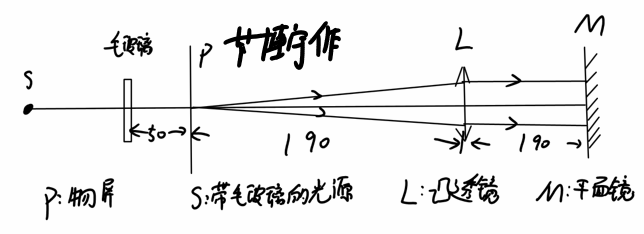 S
毛玻璃
P
L
M
50
190
190
P:物屏
S:带毛玻璃的光源
L:凸透镜
M:平面镜